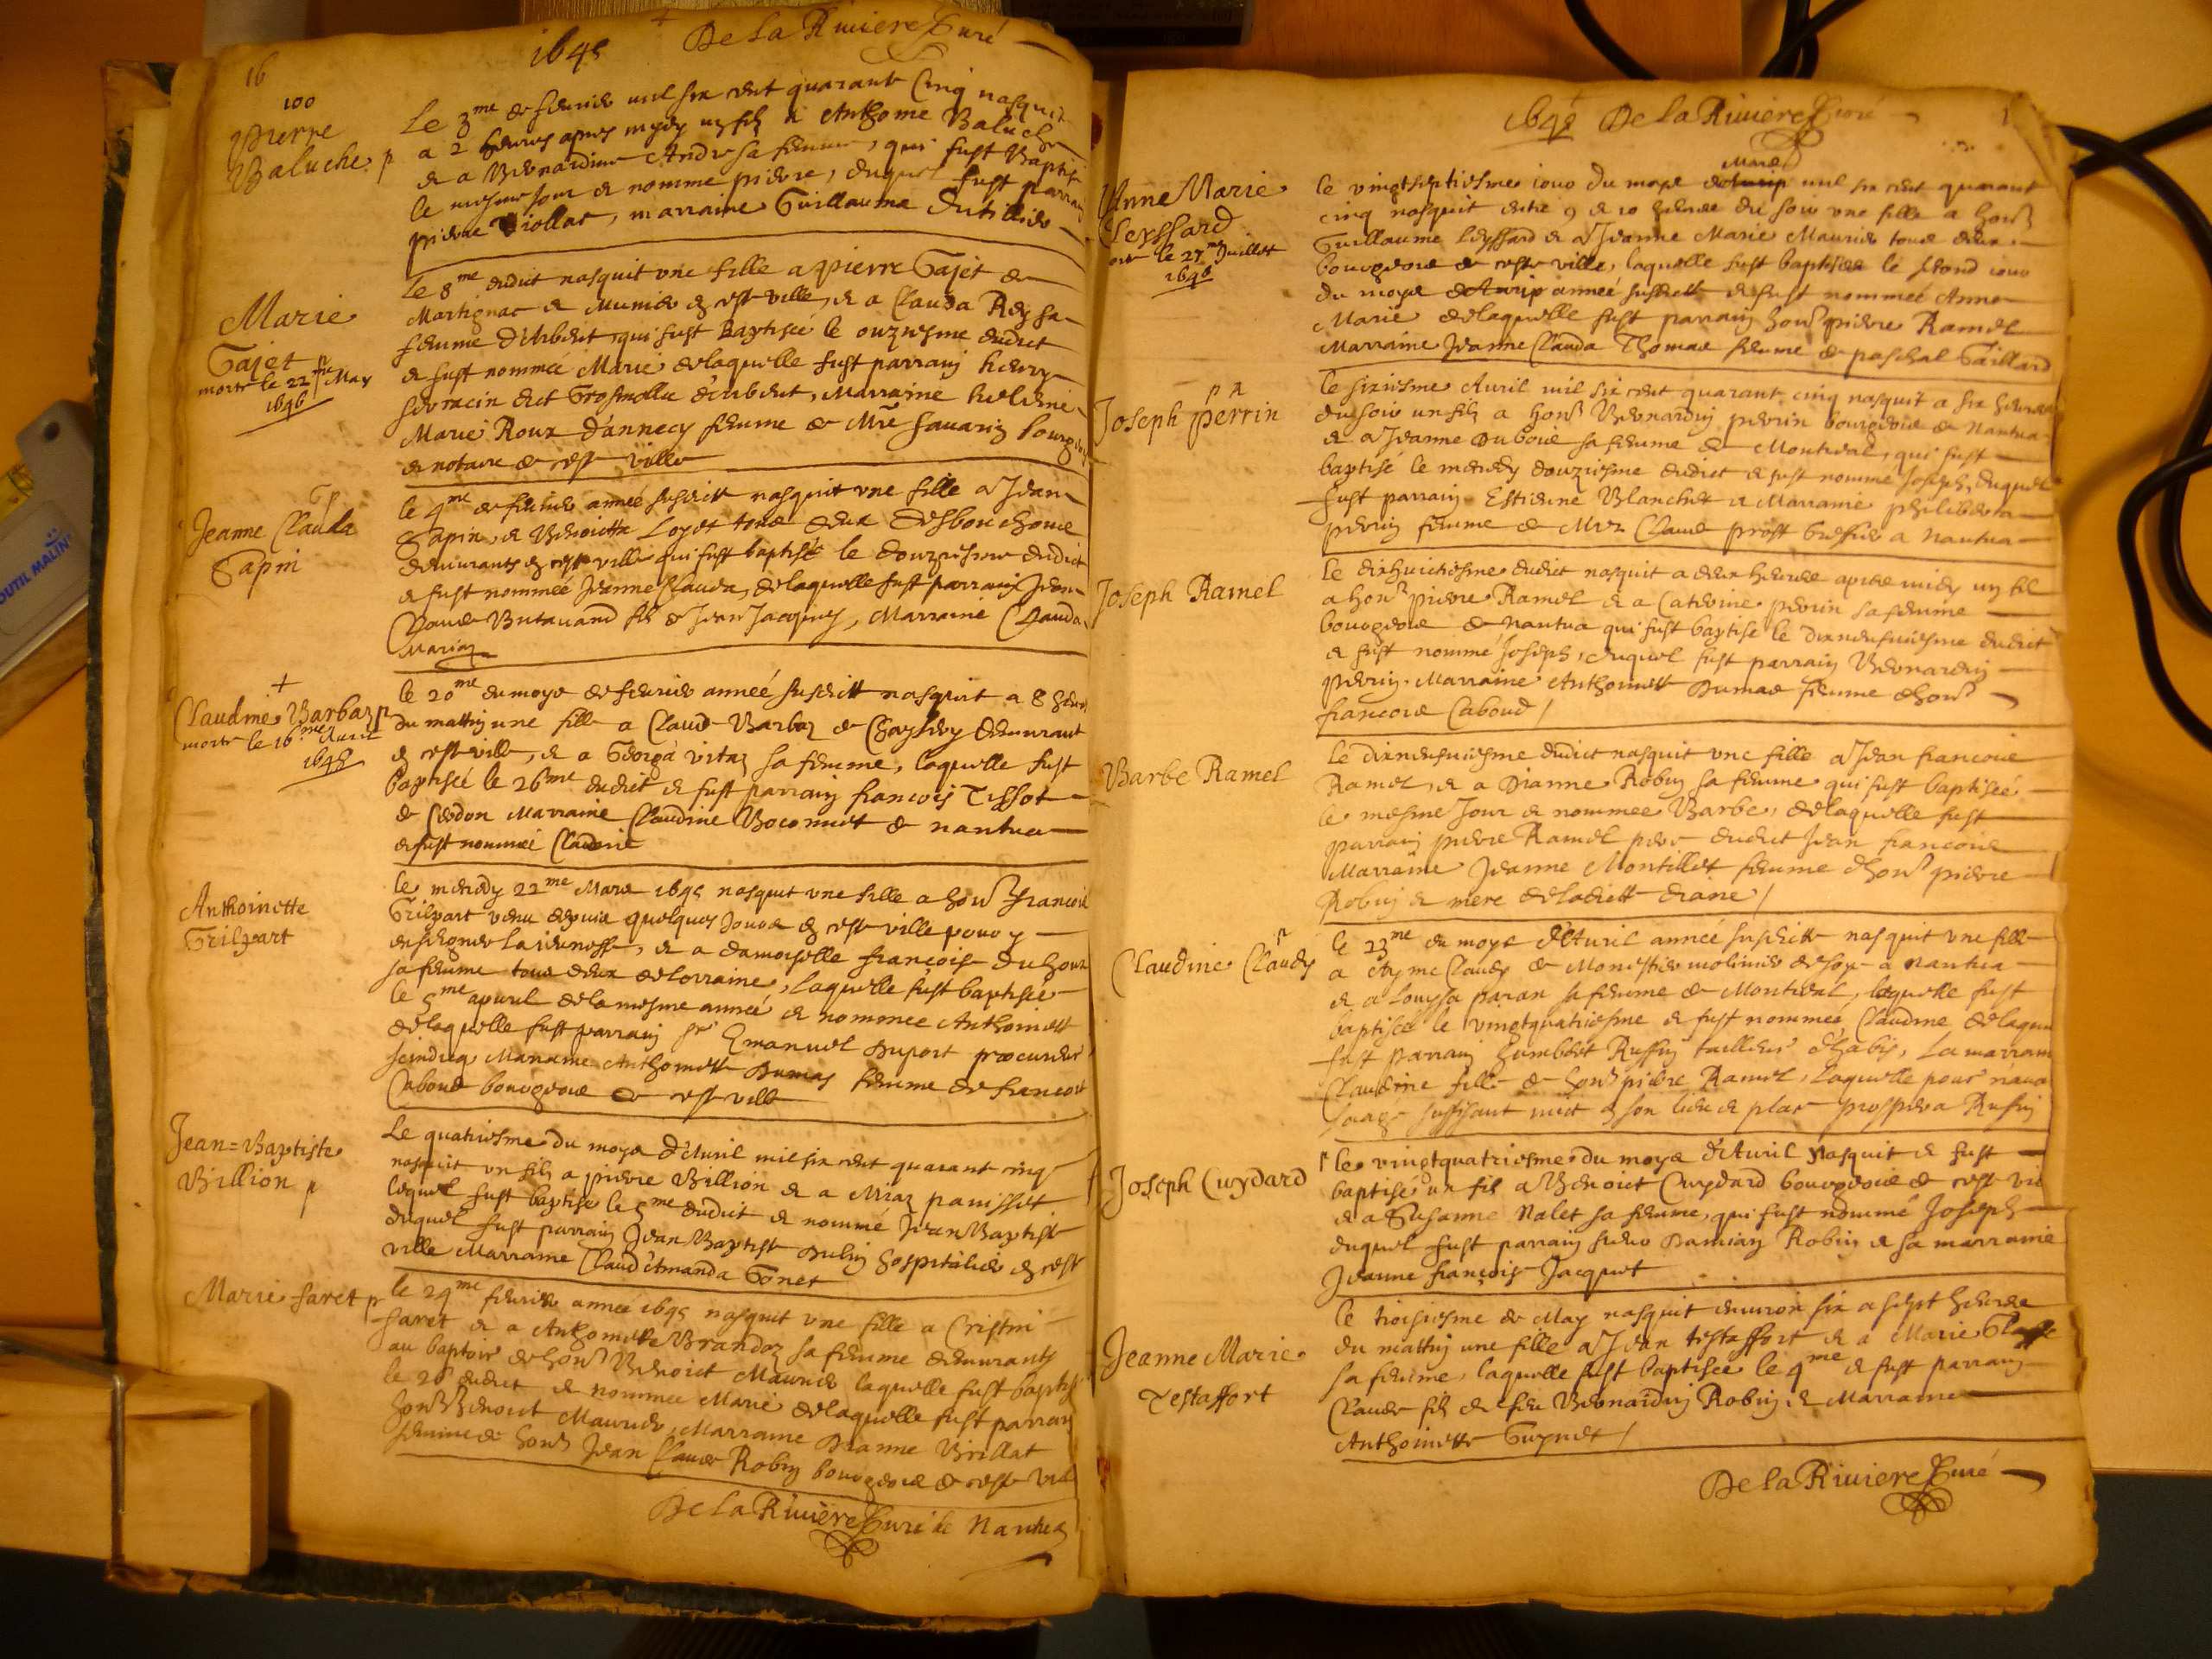 16
1645 De la Riviere Curé
100
Pierre
Baluche p
Le 3me de feurier mil six cent quarante Cinq nasquit
a 2 heures apres mydy un filz a Anthoine Baluche
et a Bernardine Andre sa femme, qui fust Baptisé
le mesme Jour et nomme pierre, duquel fust parrain
pierre Viollat, marraine Guillauma
Marie
Gajet p
morte le 22me May
1646
Le 8me dudict nasquit vne fille a pierre Gajet de
Martignac et Munier en ceste ville, et a Clauda Rey sa
femme d'Arbent, qui fust Baptiseé le onziesme dudict
et fust nommeé Marie de laquelle fust parrain henry
dict d'Arbent, Marraine helene
Marie Roux d'annecy femme de Mre Sauarin bourgeois
et notaire de ceste ville
G p
Jeanne Clauda
Gapin
le 4me de feurier anneé susdicte nasquit vne fille a Jean
Gapin, et Benoictte Loyet tous deux
demeurants en ceste ville qui fust baptiseé le douziesme dudict
et fust nommeé Jeanne Clauda, de laquelle fust parrain Jean
Claude Butauand filz de Jean Jacques, Marraine Clauda
Marin
+
Claudine Barbaz p
morte le 16me Auril
1645
le 20me du moys de feurier anneé susdicte nasquit a 8 heures
du mattin une fille a Claude Barbaz de demeurant
en ceste ville, et a Georga vitaz sa femme, laquelle fust
baptiseé le 26me dudict et fust parrain francois Tissot
de Cerdon Marraine Claudine Boconnet de nantua
et fust nommeé Claudine
Anthoinette
Grilpart
le 22me Mars 1645 nasquit vne fille a hone francois
Grilpart venu depuis quelques Jours en ceste ville pour y
la ieunesse, et a damoyselle françoise
sa femme tous deux de Lorraine, laquelle fust baptiseé
le 5me apuril de la mesme anneé et nommee Anthoinette
de laquelle fust parrain sr Emanuel Duport procureur
scindicq Marraine Anthoinette Dumas femme de francois
Caboud bourgeois de ceste ville
Jean=Baptiste
Billion p
Le quatriesme du moys d'Auril mil six cent quarante cinq
nasquit vn filz a pierre Billion et a Miaz panisset
lequel fust baptisé le 5me dudict et nommé Jean Baptiste
duquel fust parrain Jean Baptiste Dulin hospitalier en ceste
ville Marraine Claud'Amanda Gonet
Marie faret p
le 24me feurier anneé 1645 nasquit vne fille a Cristin
faret et a Anthoinette Brandon sa femme demeurants
au baptoir de hone Benoict Maurier laquelle fust baptisé
le 26 dudict et nommee Marie de laquelle fust parrain
hone Benoict Maurier, Marraine Dianne Brillat
femme de hone Jean Claude Robin bourgeois de ceste ville
De la Riviere Curé de Nantua
1645 De la Riviere Curé
Anne Marie
Leyssard
morte le 27me Juillet
1646
Mars
le vingtseptiesme iour du moys mil six cent quarante
cinq nasquit entre 9 et 10 heures du soir vne fille a hone
Guillaume Leyssard et a Jeanne Marie Maurier tous deux
bourgeois de ceste ville, laquelle fust baptisee le second iour
du moys d'Avrip anneé susdicte et fust nommeé Anne
Marie de laquelle fust parrain hone pierre Ramel
Marraine Jeanne Clauda Thomas femme de paschal Gaillard
p n
Joseph perrin
le sixiesme Auril mil six cent quarante cinq nasquit a six heures
du soir un filz a hone Bernardin perrin bourgeois de Nantua
et a Jeanne Duboue sa femme de Montreal, qui fust
baptisé le mercredy douziesme dudict et fust nommé Joseph, duquel
fust parrain Estienne Blanchet et Marraine philiberta
perrin femme de Mre Claude prost Greffier a Nantua
Joseph Ramel
le dixhuictiesme dudict nasquit a deux heures apres midy un filz
a hone pierre Ramel et a Caterine perrin sa femme
bourgeois de nantua qui fust baptisé le dixneufuiesme dudict
et fust nommé Joseph, duquel fust parrain Bernardin
perrin. Marraine Anthoinette Dumas femme d'hone
francois Caboud /
Barbe Ramel
Le dixneufuiesme dudict nasquit vne fille a Jean francois
Ramel, et a Dianne Robin sa femme qui fust baptiseé
le mesme Jour et nommee Barbe, de laquelle fust
parrain pierre Ramel pere dudict Jean francois
Marraine Jeanne Montillet femme d'hone pierre
Robin et mere de ladicte diane /
n
Claudine Claudy
le 23me du moys d'Auril anneé susdicte nasquit vne fille
a Ayme Claudy de Monestier molinier de soye a nantua
et a Louysa paran sa femme de Montreal, laquelle fust
baptiseé le vingtquatriesme et fust nommeé Claudine de laquelle
fust parrain humbert Ruffin tailleur d'habis, la marraine
Claudine fille de hone pierre Ramel, laquelle pour n'auoir
l'aage suffisant mict en son lieu et place prospera Rufin
Joseph Cuydard
le vingtquatriesme du moys d'Auril Nasquit et fust
baptisé un filz a Benoict Cuydard bourgeois de ceste ville
et a Susanne Nalet sa femme, qui fust nommé Joseph
duquel fust parrain sieur Damian Robin et sa marraine
Jeanne françoise Jacquet
Jeanne Marie
Testaffort
le troisiesme de May nasquit enuiron six a sept heures
du mattin une fille a Jean testaffort et a Marie
sa femme, laquelle fust baptiseé le 4me et fust parrain
Claude filz de feu Bernardin Robin et Marraine
Anthoinette Guynet /
De la Riviere Curé
OUTIL MALIN